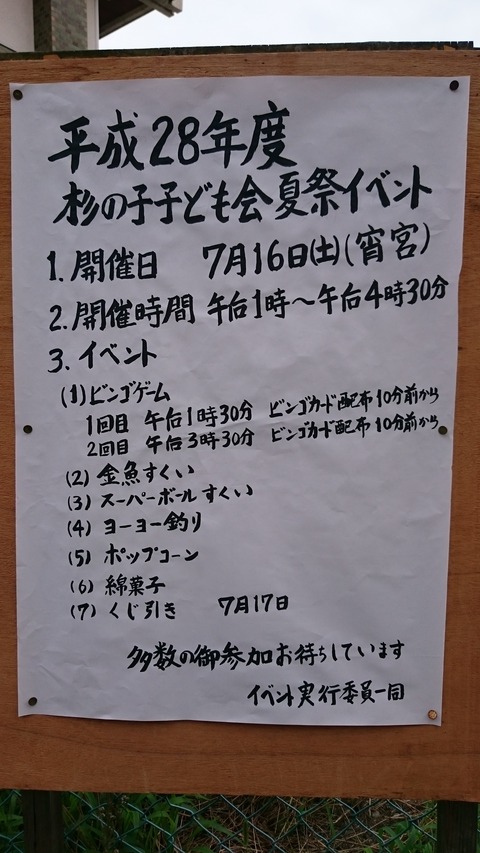 平成28年度
杉の子子ども会夏祭イベント
1.開催日 7月16日(土)(宵宮)
2.開催時間 午后1時～午后4時30分
3.イベント
(1)ビンゴゲーム
1回目 午后1時30分 ビンゴカード配布10分前から
2回目 午后3時30分 ビンゴカード配布10分前から
(2)金魚すくい
(3)スーパーボールすくい
(4)ヨーヨー釣り
(5)ポップコーン
(6)綿菓子
(7)くじ引き 7月17日
多数の御参加お待ちしています
イベント実行委員一同